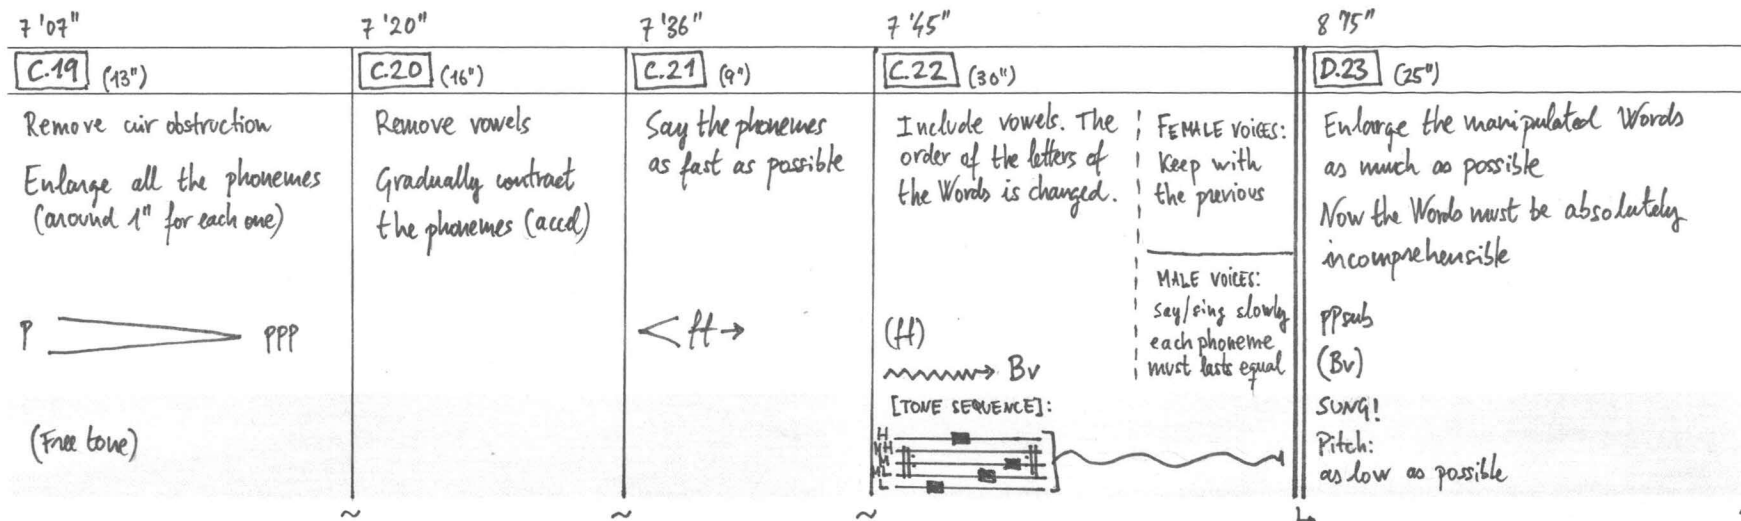 7'07"
C.19 (13")
Remove air obstruction
Enlarge all the phonemes
(around 1" for each one)
P ppp
(Free tone)
7'20"
C.20 (16")
Remove vowels
Gradually contract
the phonemes (accd)
7'36"
C.21 (9")
Say the phonemes
as fast as possible
ff
7'45"
C.22 (30")
Include vowels. The
order of the letters of
the Words is changed.
(ff)
Bv
[TONE SEQUENCE]:
H
MH
M
ML
L
FEMALE VOICES:
Keep with
the previous
MALE VOICES:
say/sing slowly
each phoneme
must lasts equal
8'15"
D.23 (25")
Enlarge the manipulated Words
as much as possible
Now the Words must be absolutely
incomprehensible
ppsub
(Bv)
SUNG!
Pitch:
as low as possible